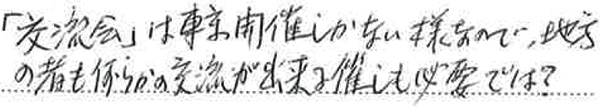 「交流会」は東京開催しかない様なので、地方
の者も何らかの交流が出来る催しも必要では?